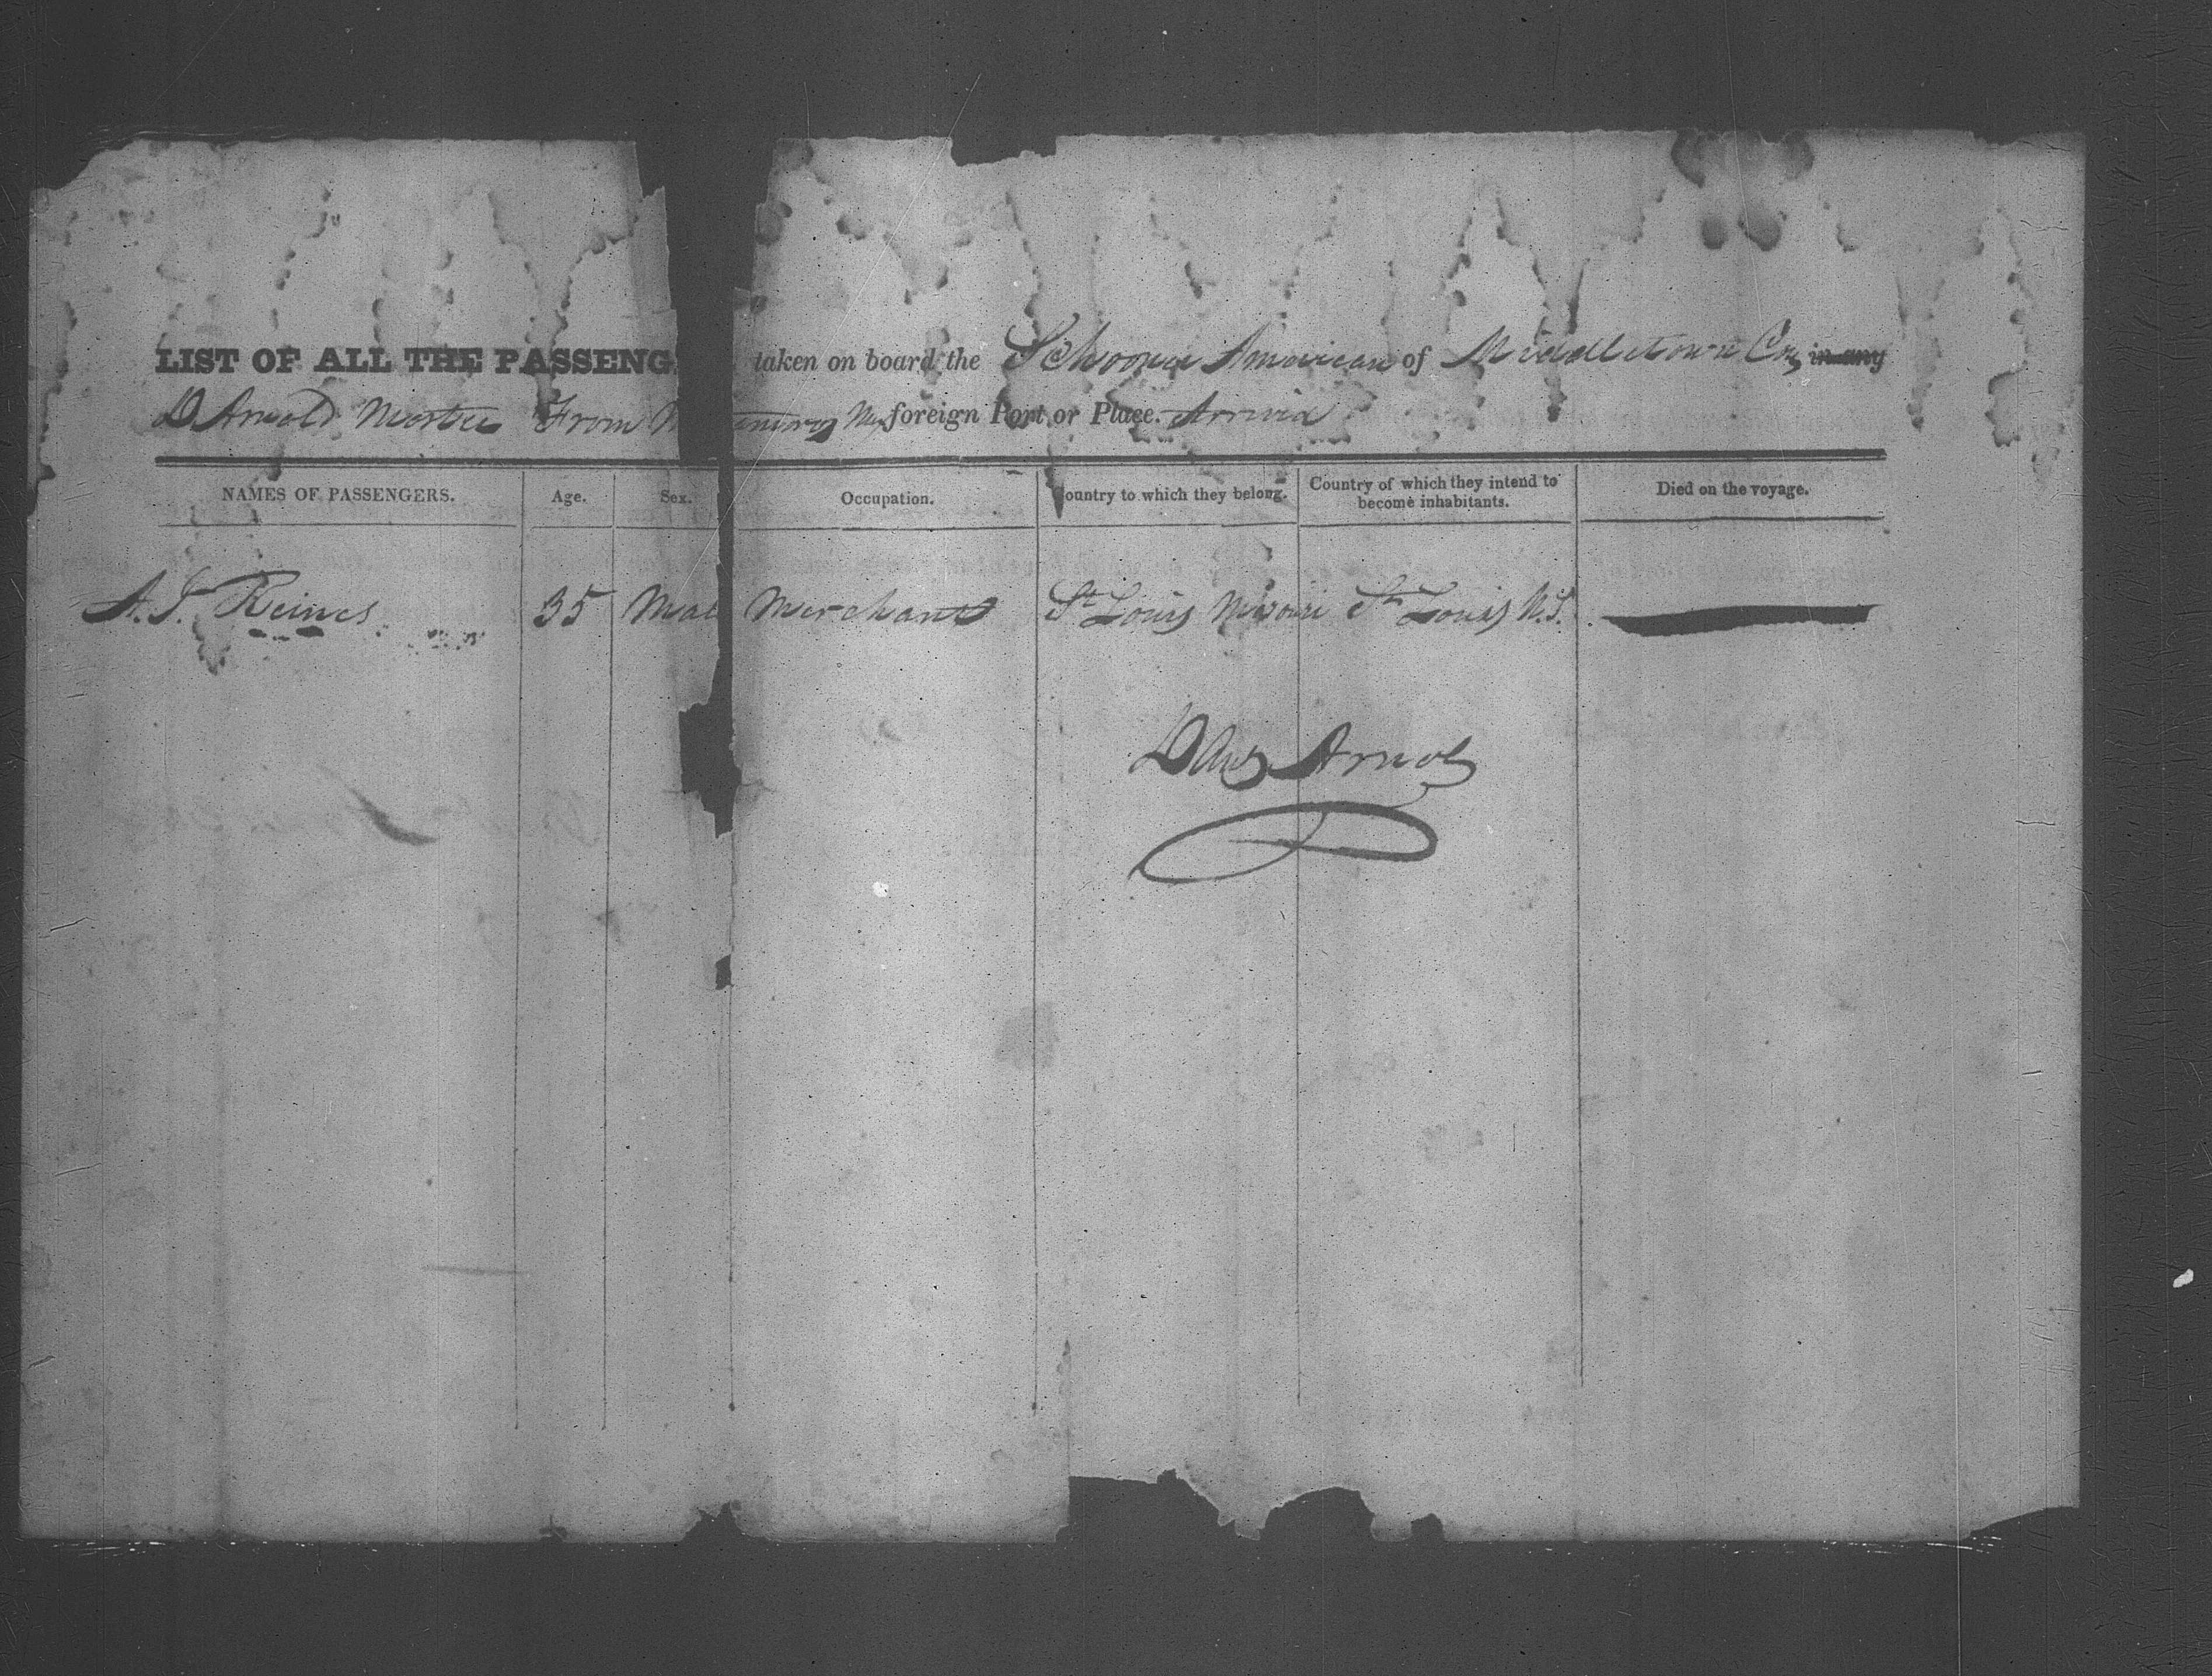 LIST OF ALL THE PASSENG taken on board the Schooner American of Middletown Con, in any
D Arnold Master From foreign Port or Place. Arrivd
NAMES OF PASSENGERS. Age. Sex. Occupation. ountry to which they belong. Country of which they intend to become inhabitants. Died on the voyage.
A. J. Reines 35 Mal Merchant St Louis Misouri St Louis
Arnold